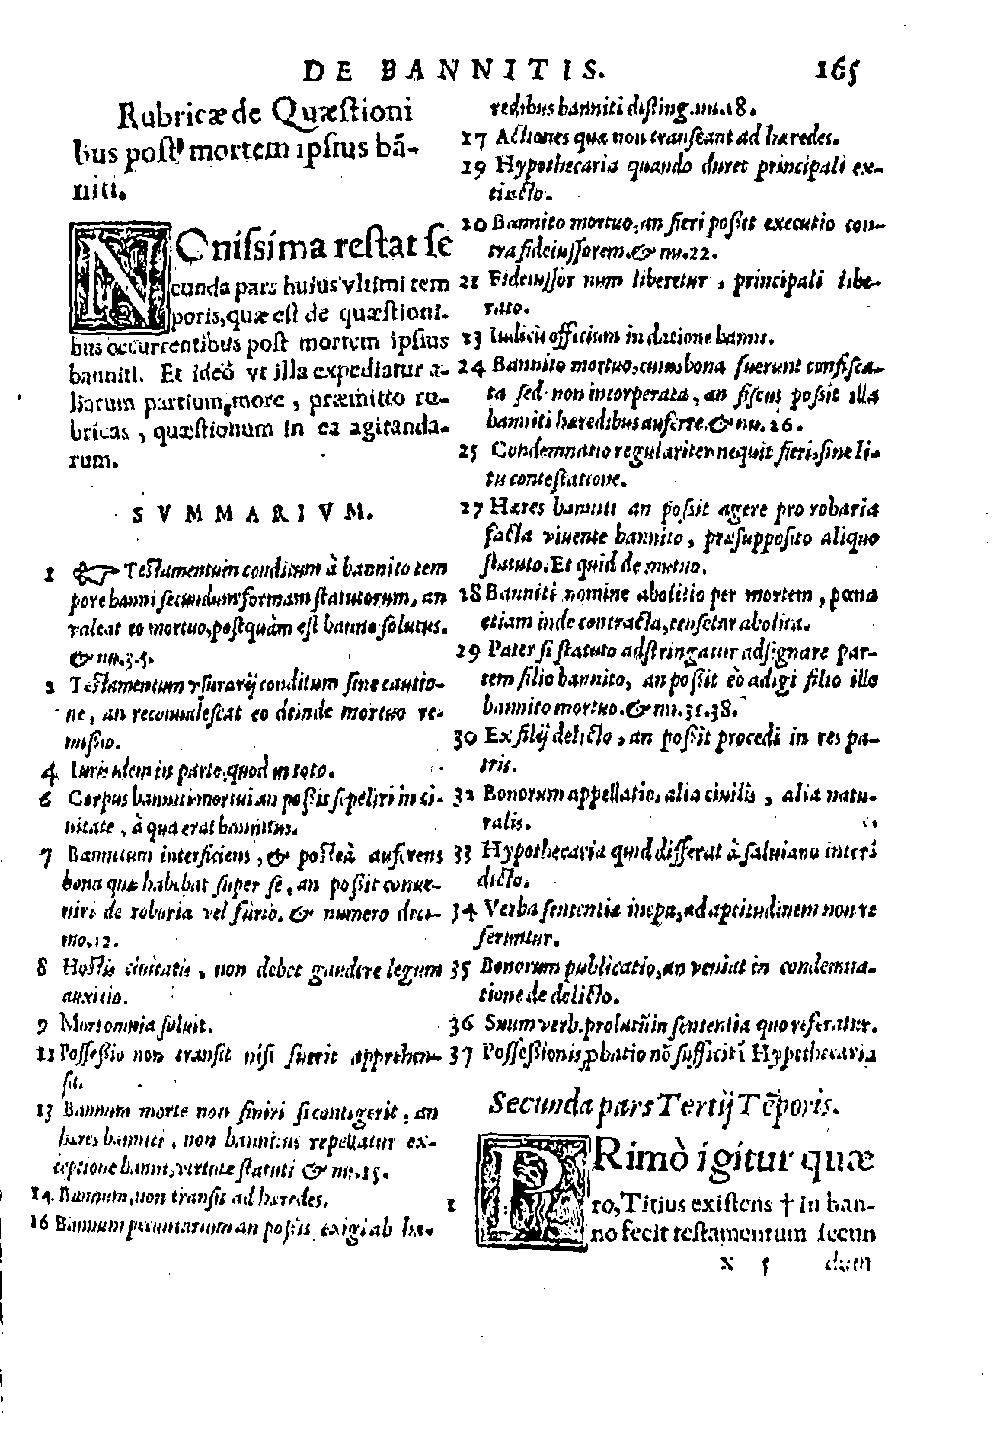 DE BANNITIS. 165
Rubricæ de Quæstioni
bus post mortem ipsius bā-
niti.
NOnissima restat se
cunda pars huius vltimi tem
poris, quæ est de quæstioni-
bus occurrentibus post mortem ipsius
banniti. Et ideò vt illa expediatur a-
liarum partium more, præmitto ru-
bricas, quæstionum in ea agitanda-
rum.
SVMMARIVM.
1 ☞ Testamentum conditum à bannito tem
pore banni secundum formam statutorum, an
valeat eo mortuo, postquàm est banno solutus.
& nu.3.5.
2 Testamentum vsurarij conditum sine cautio-
ne, an reconualescat eo deinde mortuo re-
misso.
4 Iuris idem in parte, quod in toto.
6 Corpus banniti mortui an possit sepeliri in ci-
uitate, à qua erat bannitus.
7 Bannitum interficiens, & posteà auferens
bona quæ habebat super se, an possit conue-
niri de robaria vel furto. & numero deci-
mo.12.
8 Hostis ciuitatis, non debet gaudere legum
auxilio.
9 Mors omnia soluit.
11 Possessio non transit nisi fuerit apprehen-
sa.
13 Bannum morte non finiri si contigerit, an
hæres banniti, non bannitus repellatur ex-
ceptione banni, virtute statuti & nu.15.
14 Bannum, non transit ad hæredes.
16 Bannum pecuniarium an possit exigi ab hæ-
redibus banniti disting. nu.18.
17 Actiones quæ non transeant ad hæredes.
19 Hypothecaria quando duret principali ex-
tincto.
20 Bannito mortuo, an fieri possit executio con-
tra fideiussorem. & nu.22.
21 Fideiussor num liberetur, principali libe-
rato.
23 Iudicis officium in datione banni.
24 Bannito mortuo, cuius bona fuerunt confisca-
ta sed non incorperata, an fiscus possit illa
banniti hæredibus auferre. & nu. 26.
25 Condemnatio regulariter nequit fieri, sine li-
tis contestatione.
27 Hæres banniti an possit agere pro robaria
facta viuente bannito, præsupposito aliquo
statuto. Et quid de mutuo.
28 Banniti nomine abolitio per mortem, pœna
etiam inde contracta, censetur abolita.
29 Pater si statuto adstringatur adsignare par-
tem filio bannito, an possit eò adigi filio illo
bannito mortuo. & nu.31.38.
30 Ex filij delicto, an possit procedi in res pa-
tris.
32 Bonorum appellatio, alia ciuilis, alia natu-
ralis.
33 Hypothecaria quid differat à saluiano interi
dicto.
34 Verba sententiæ inepta, ad aptitudinem non re
feruntur.
35 Bonorum publicatio, an veniat in condemna-
tione de delicto.
36 Suum verb. prolatū in sententia quo referatur.
37 Possessionis ꝓbatio nō sufficit ī Hypothecaria
Secunda pars Tertij Tēporis.
1 PRimò igitur quæ
ro, Titius existens † In ban-
no fecit testamentum secun
X 5 dum